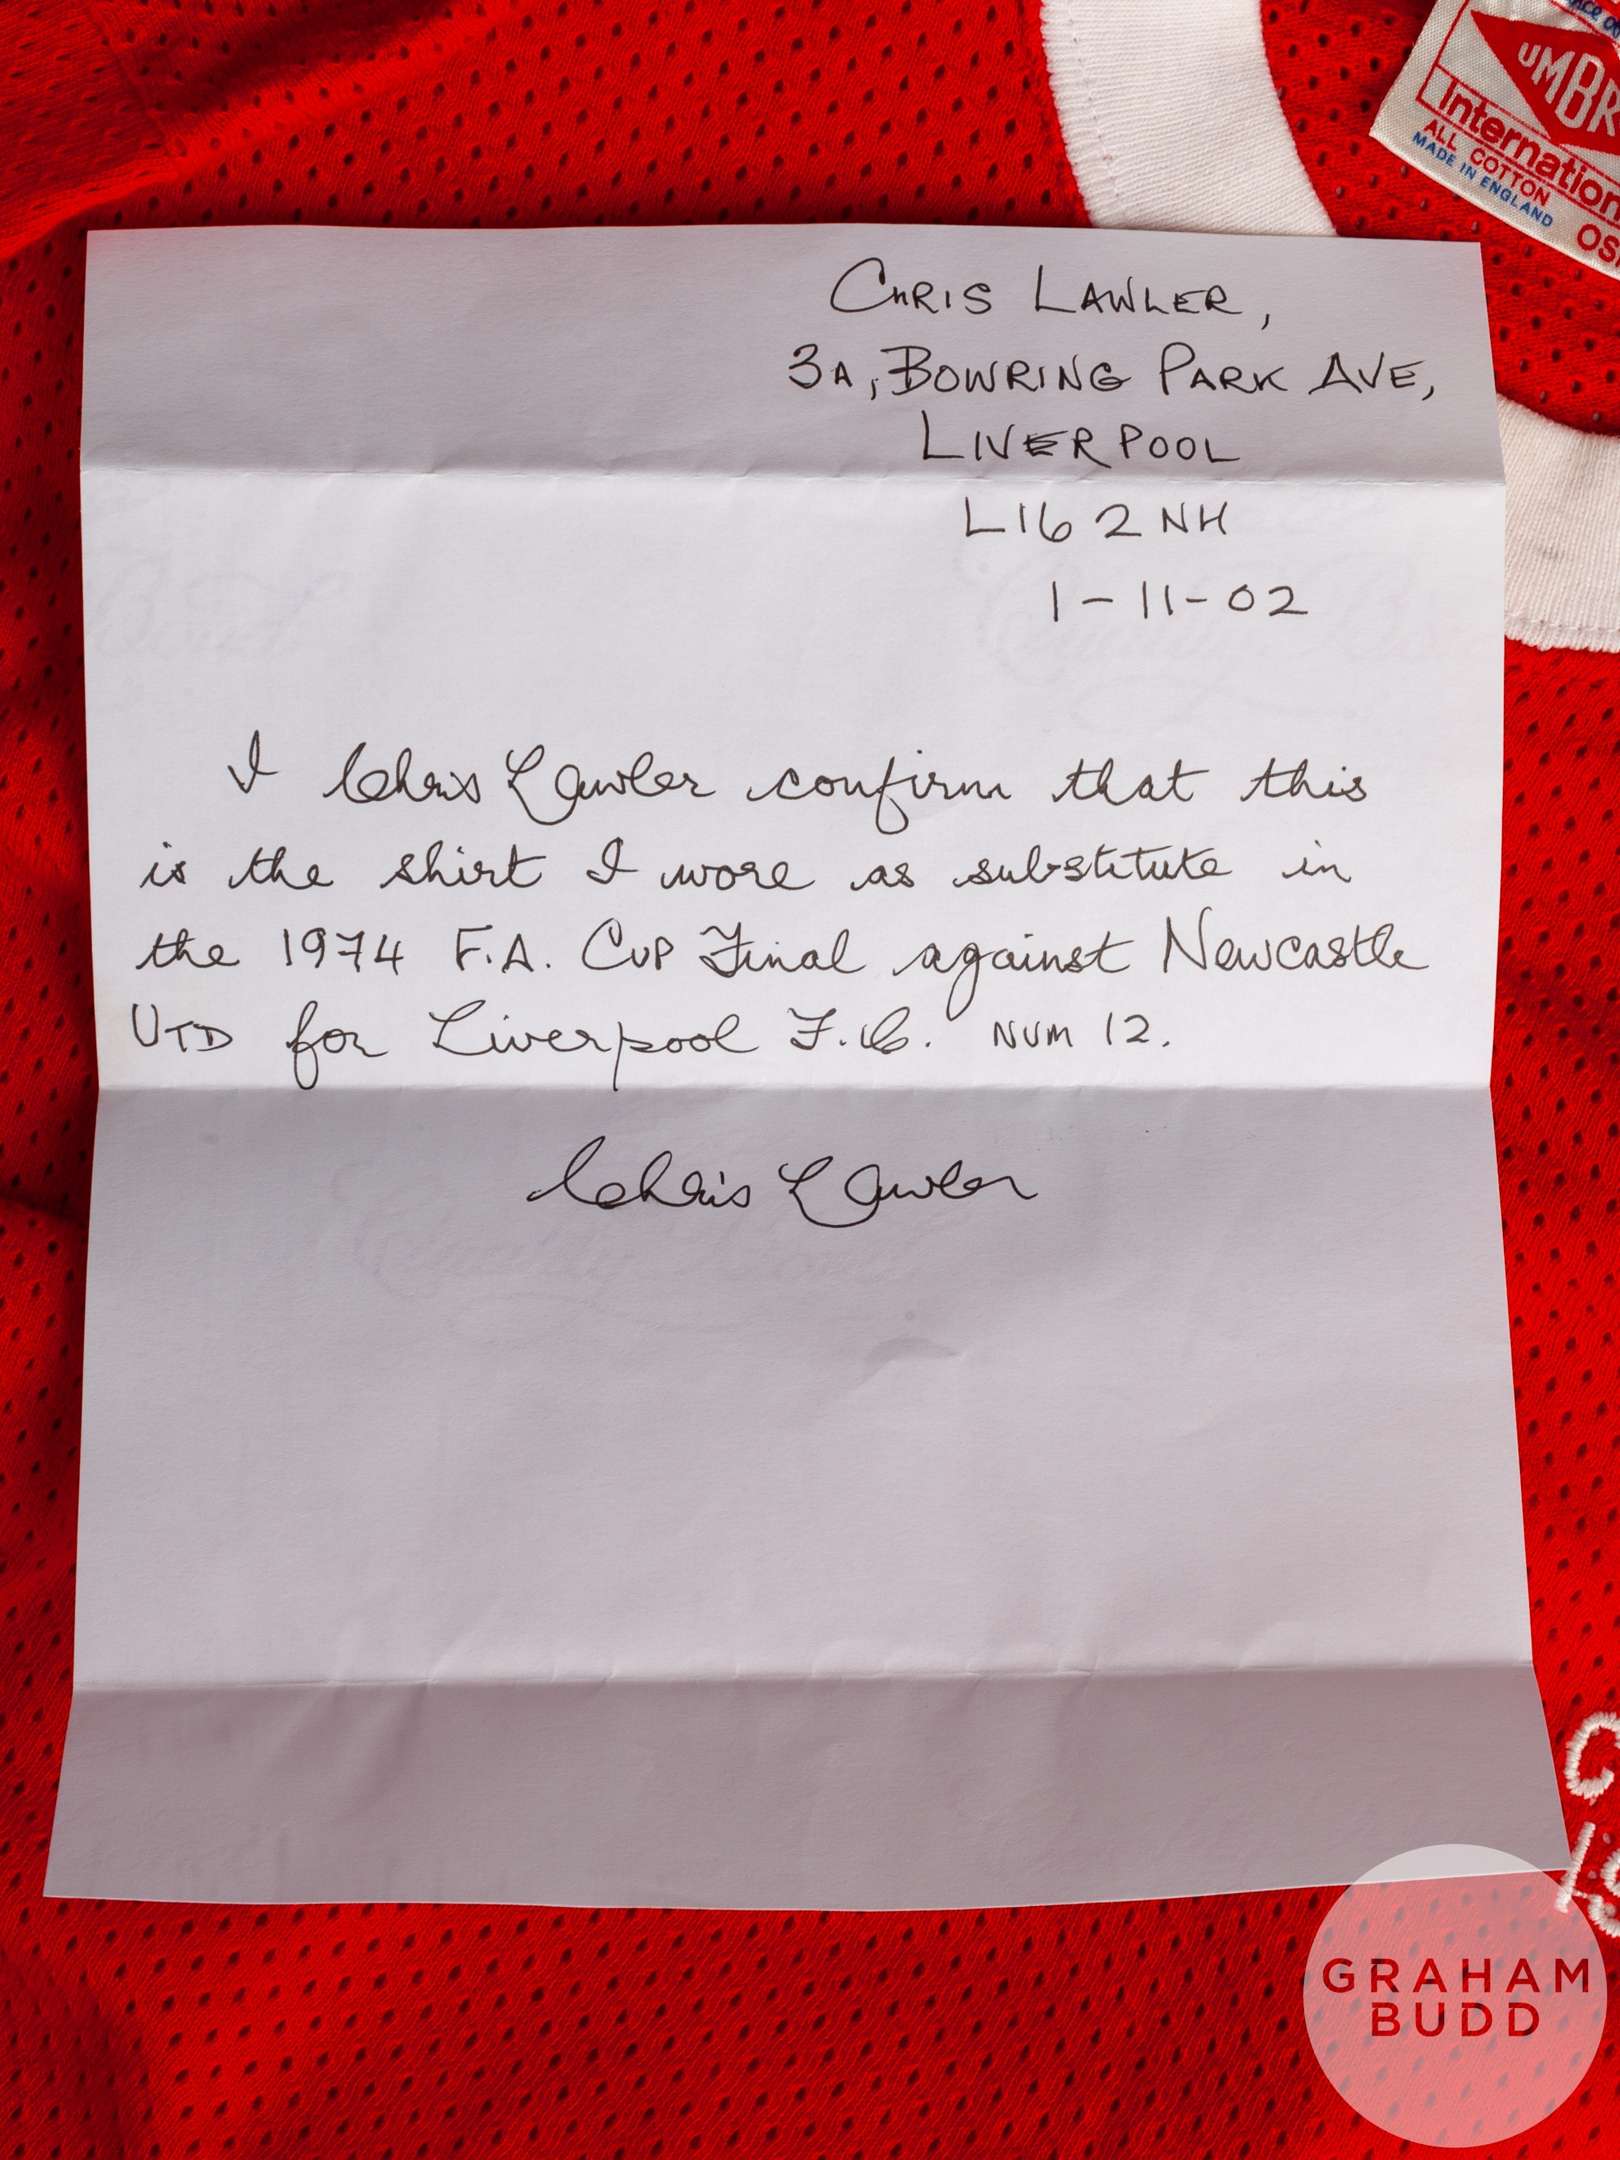 UMBR
International
ALL COTTON
MADE IN ENGLAND
OS
CHRIS LAWLER,
3A, BOWRING PARK AVE,
LIVERPOOL
L16 2NH
1-11-02
I Chris Lawler confirm that this
is the shirt I wore as substitute in
the 1974 F.A. CUP Final against Newcastle
UTD for Liverpool F.C. NUM 12.
Chris Lawler
C
19
GRAHAM
BUDD